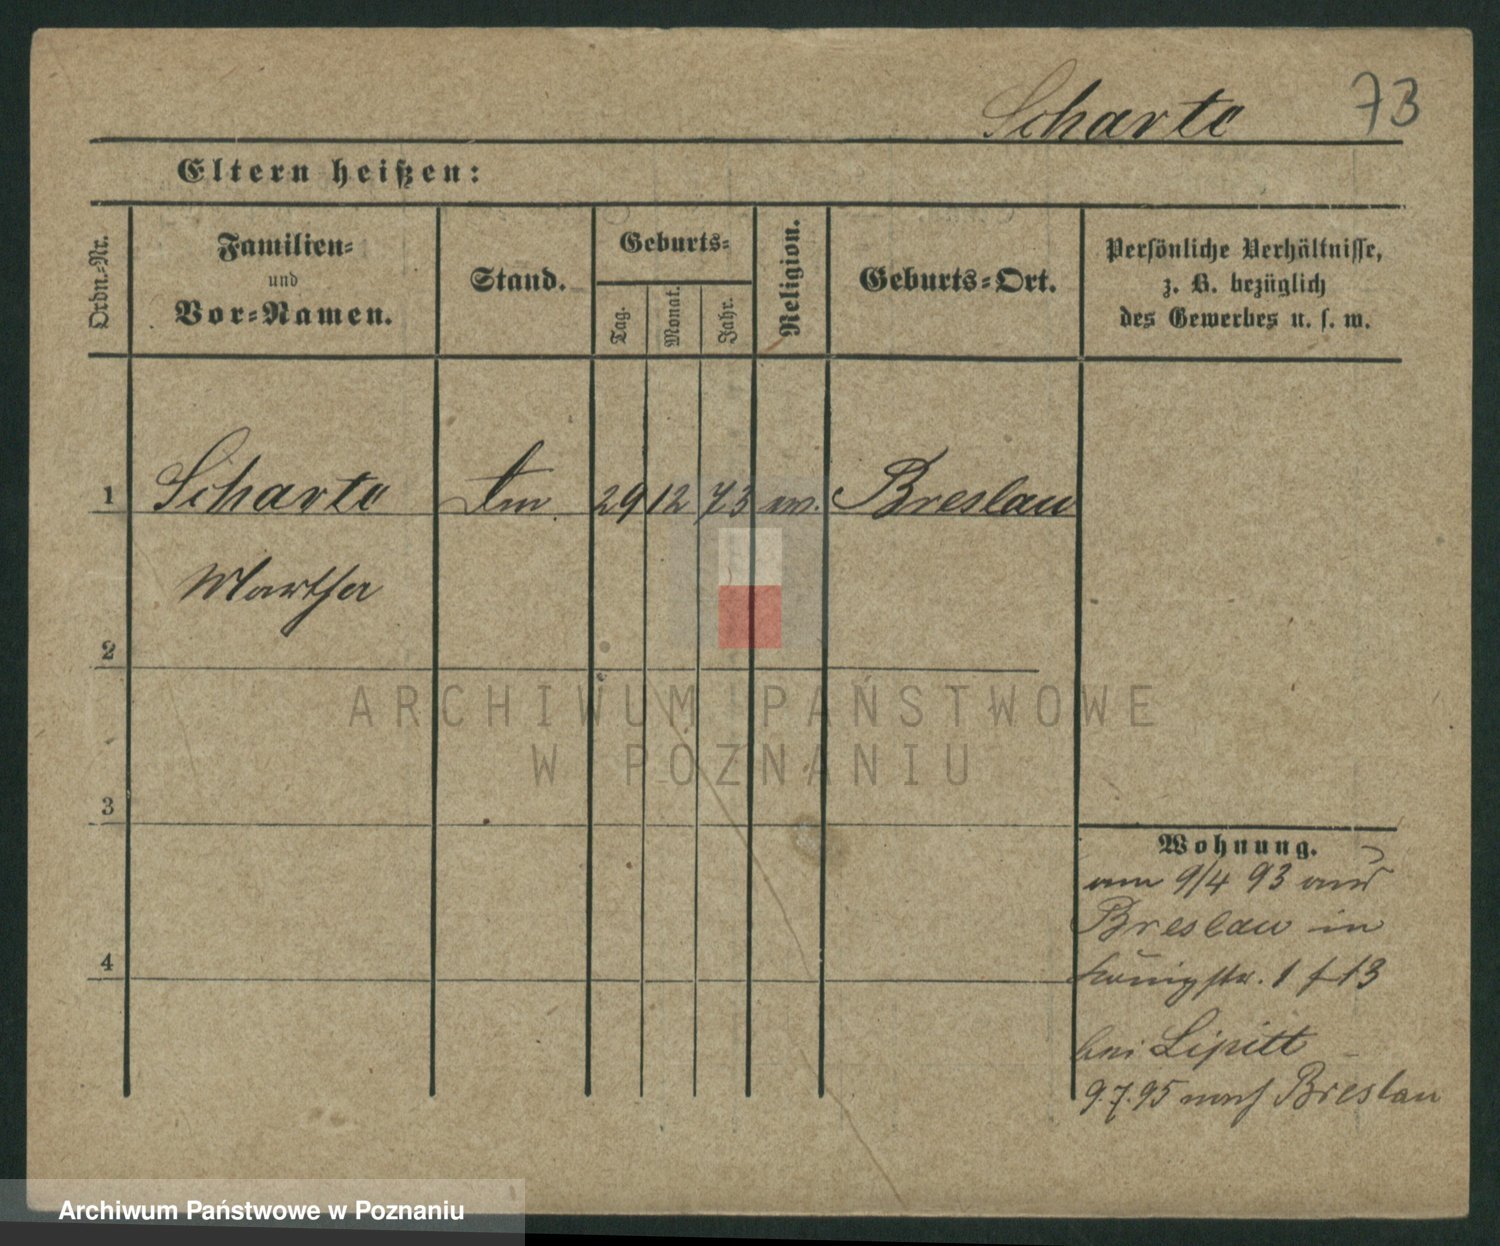 Scharte 73
Eltern heißen:
Ordn.-Nr.
Familien-
und
Vor-Namen.
Stand.
Geburts-
Tag.
Monat.
Jahr.
Religion.
Geburts-Ort.
Persönliche Verhältnisse,
z. B. bezüglich
des Gewerbes u. s. w.
1 Scharte 29 12 73 Breslau
Martha
2
3
4
Wohnung.
am 9/4 93 aus
Breslau in
Königstr. 1 f 13
bei Lipitt
9.7.95 nach Breslau
ARCHIWUM PAŃSTWOWE
W POZNANIU
Archiwum Państwowe w Poznaniu